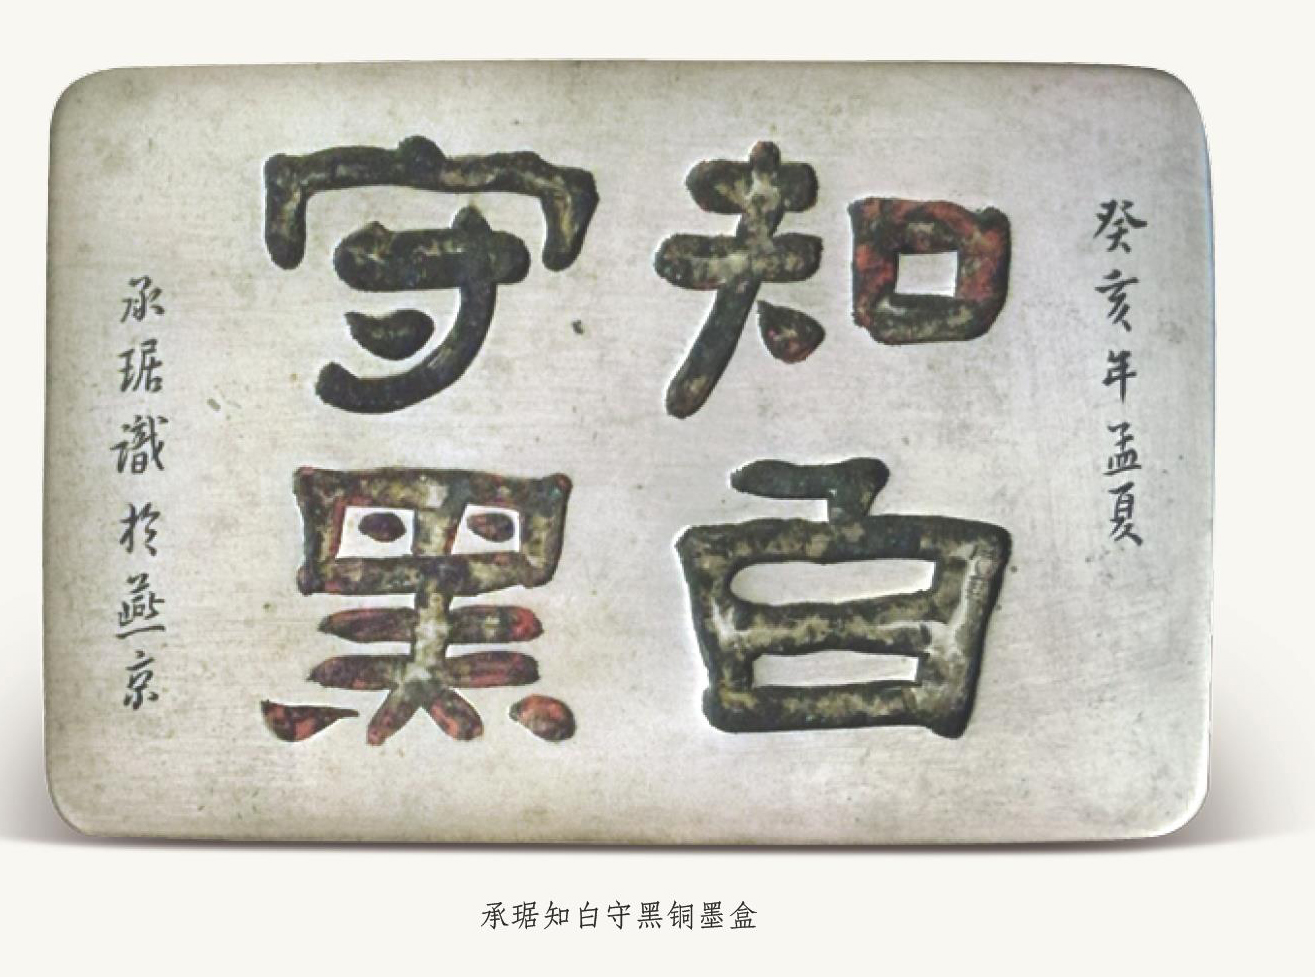 癸亥年孟夏
知白
守黑
承琚識於燕京
承琚知白守黑铜墨盒